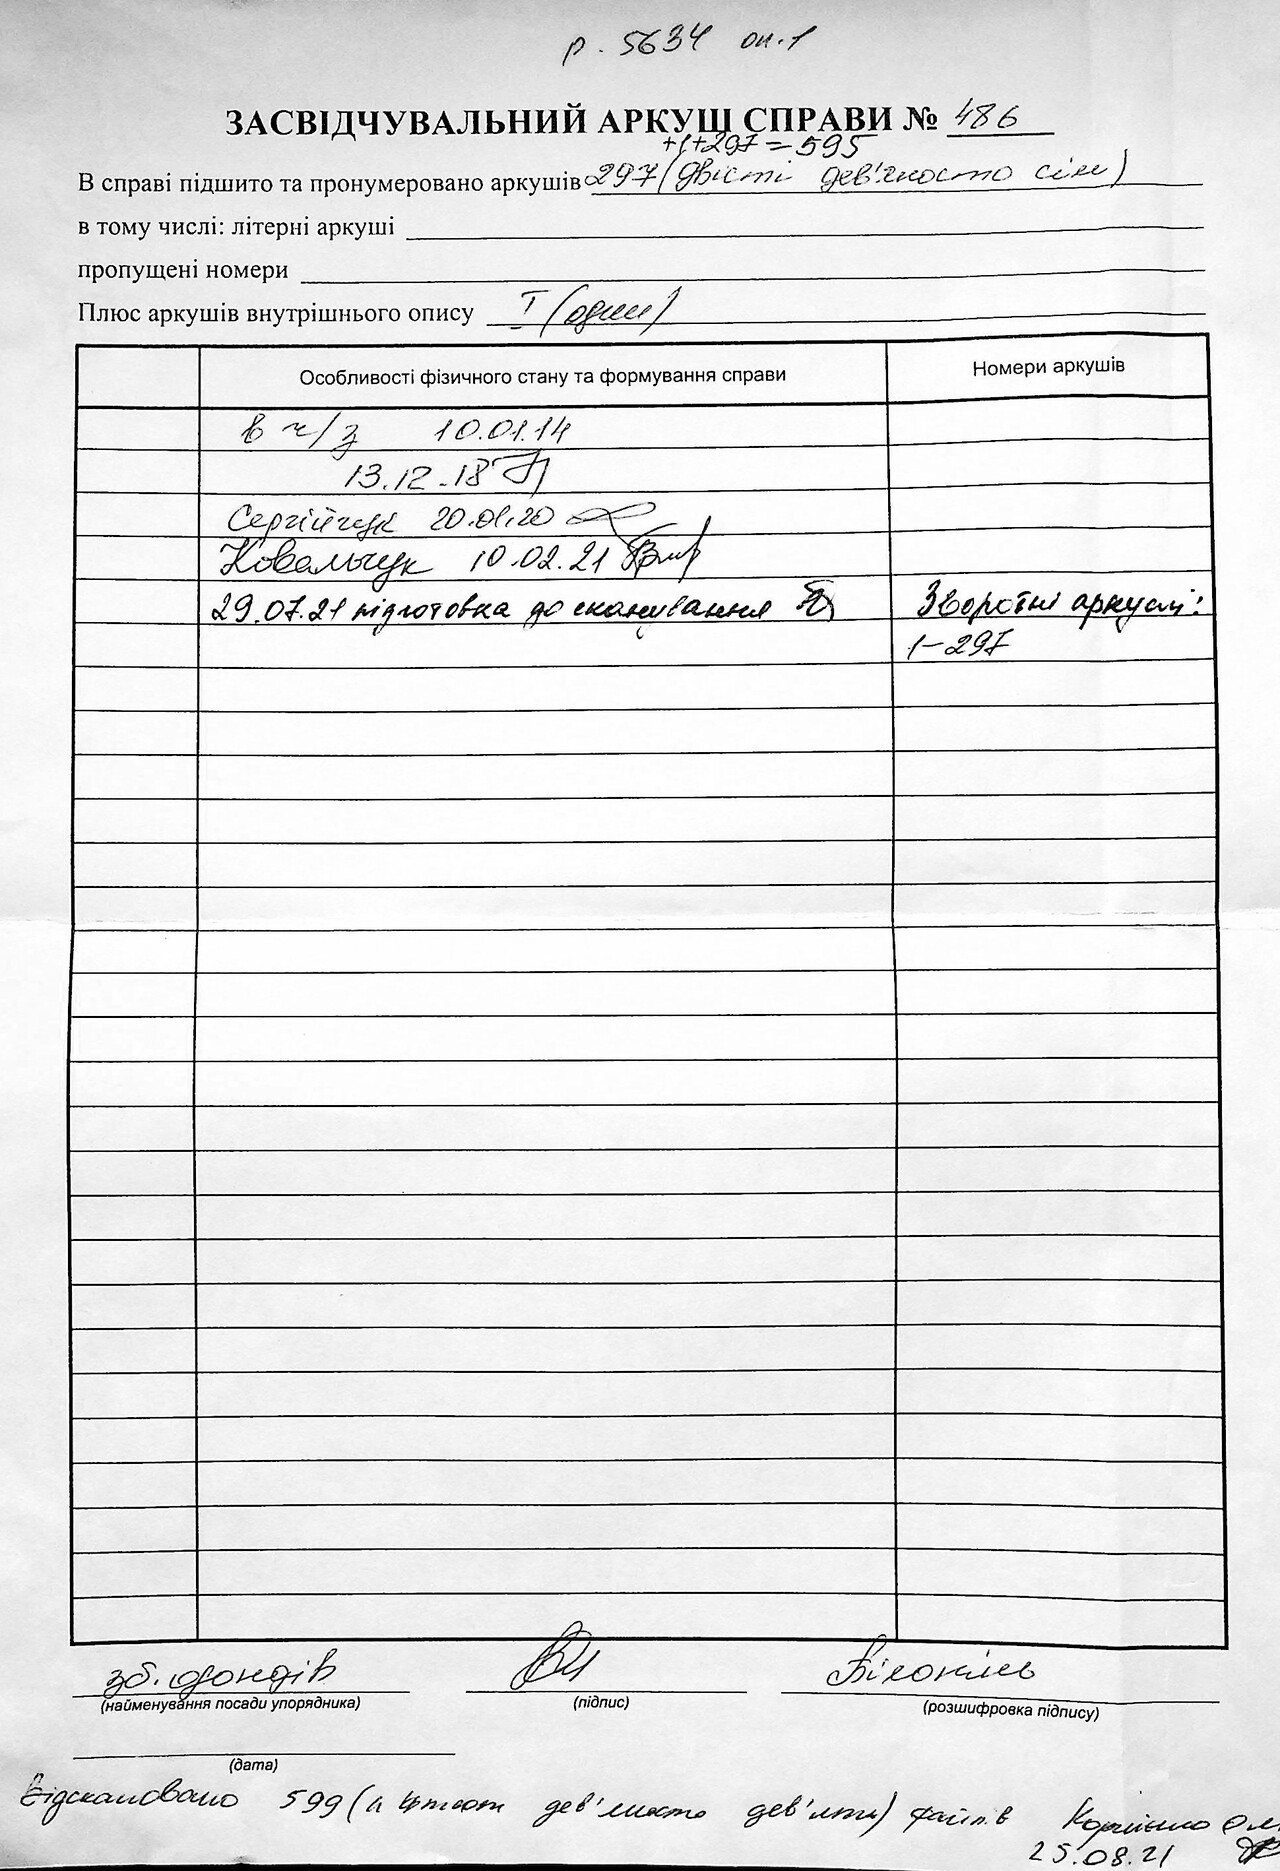 р. 5634 оп.1
ЗАСВІДЧУВАЛЬНИЙ АРКУШ СПРАВИ № 486
+1+297=595
В справі підшито та пронумеровано аркушів 297 (двісті дев'яносто сім)
в тому числі: літерні аркуші
пропущені номери
Плюс аркушів внутрішнього опису I (один)
Особливості фізичного стану та формування справи Номери аркушів
в ч/з 10.01.14
13.12.18
Сергійчук 20.01.20
Ковальчук 10.02.21
29.07.21 підготовка до сканування Зворотні аркуші:
1-297
зб. фондів Білокінь
(найменування посади упорядника) (підпис) (розшифровка підпису)
(дата)
Відскановано 599 (п'ятсот дев'яносто дев'яти) файлів
25.08.21